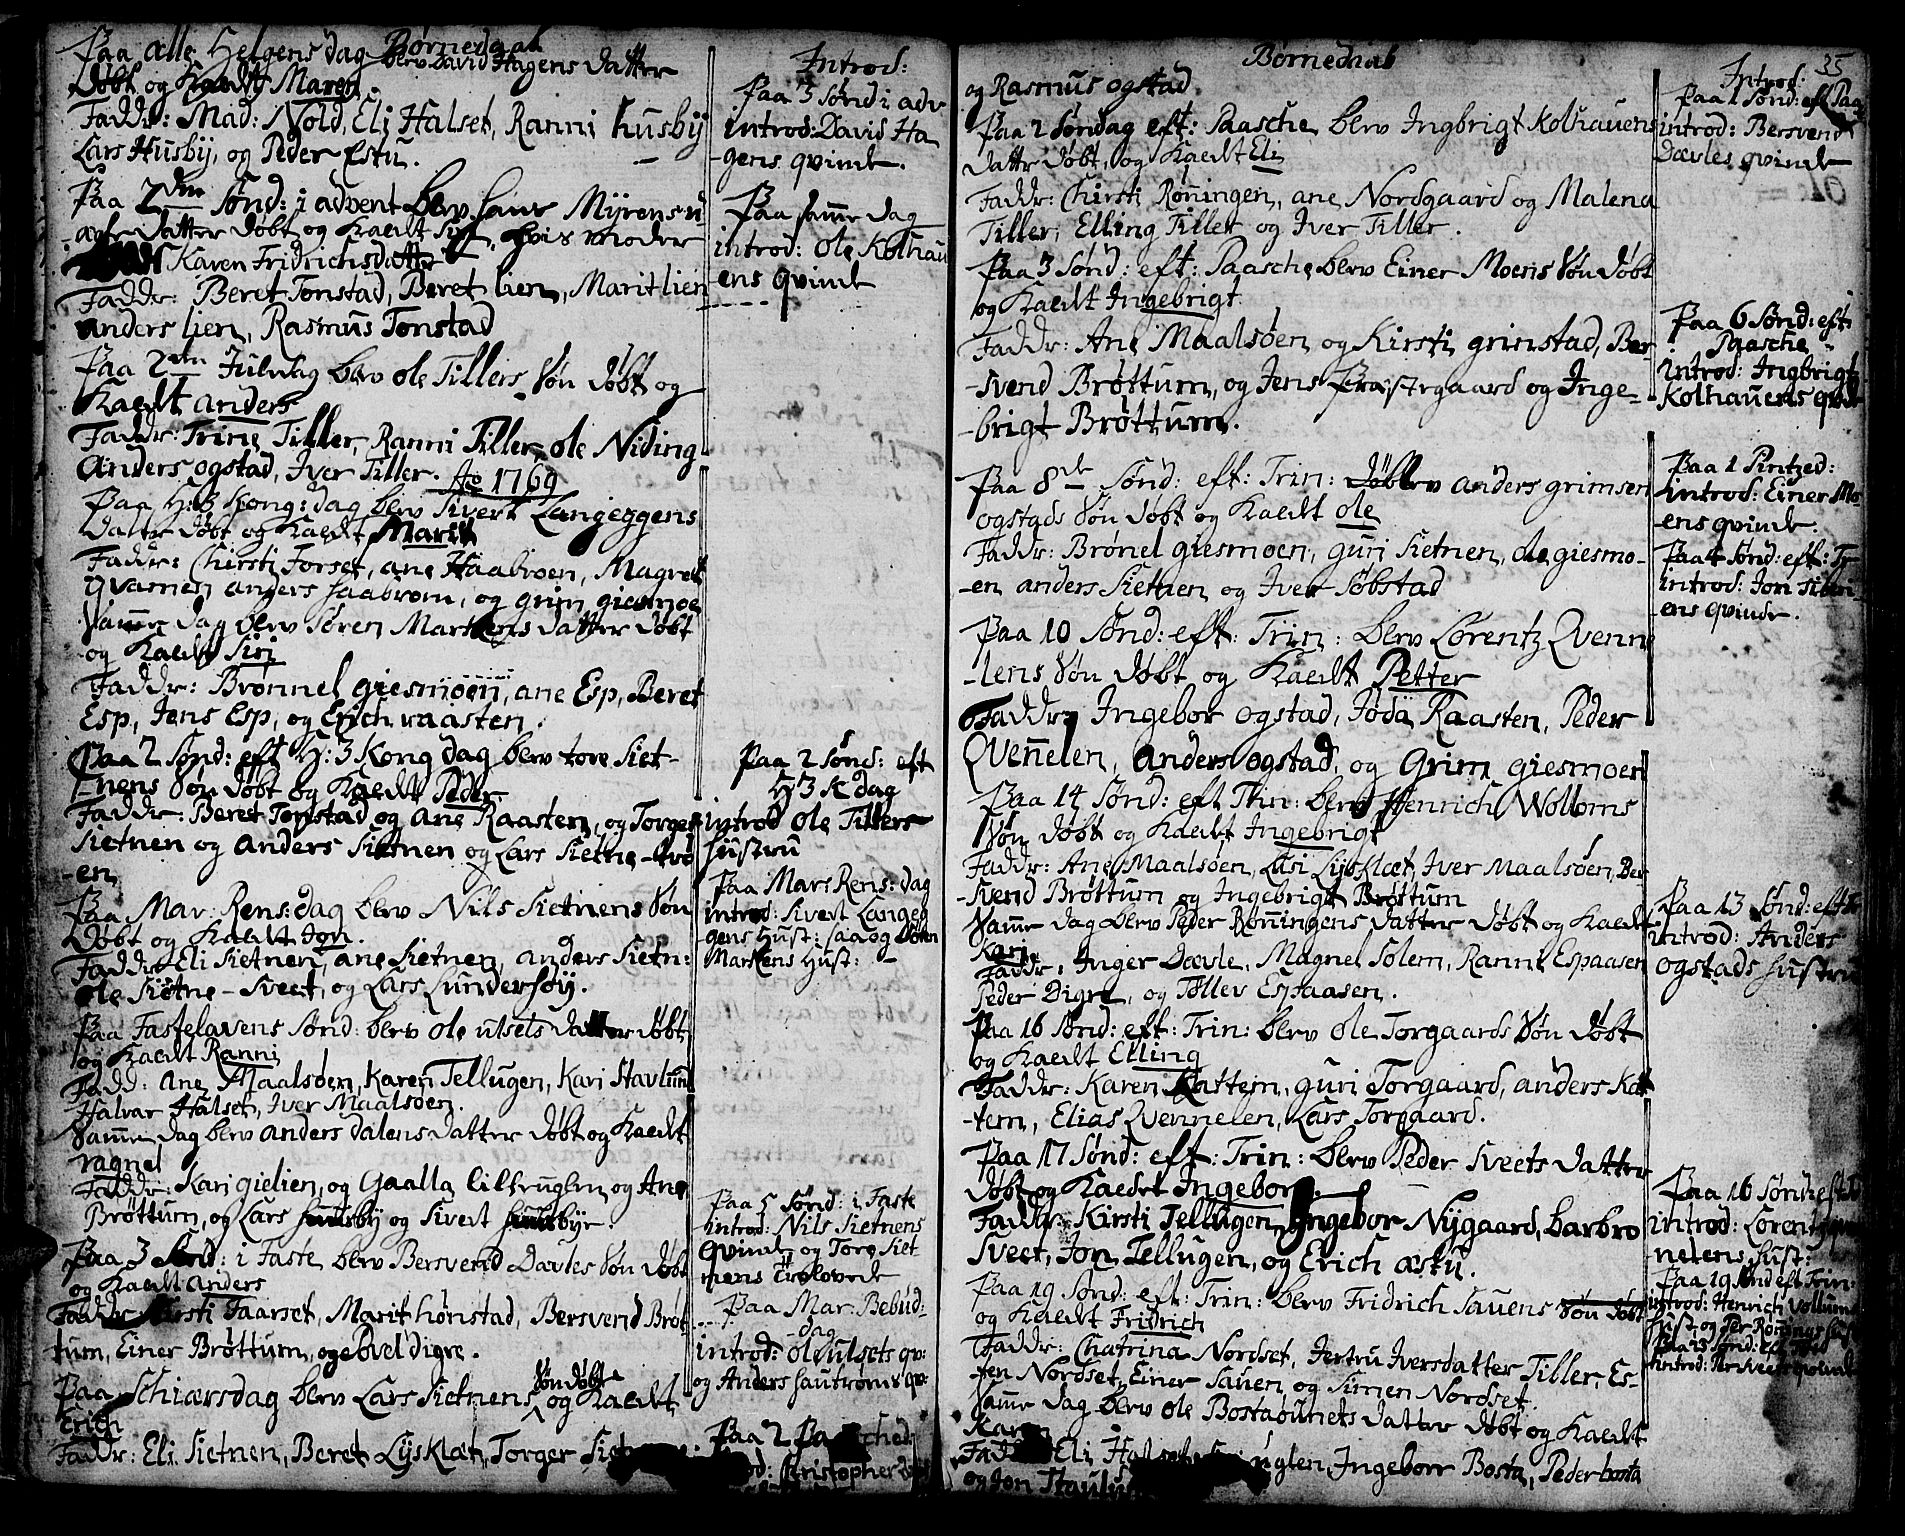 Børnedaab
Paa alle Helgens dag blev David Hagens datter
døbt og kaldt Maren.
Faddr: Mad: Nold, Eli Halset, Ranni Husby
Lars Husby, og Peder Estu.
Paa 2den Sønd: i advent blev
datter døbt og kaldt Siri, hvis moder
Karen Fridrichsdatter
Faddr: Beret Tonstad, Beret lien, Marit lien
anders lien, Rasmus Tonstad
Paa 2den Juledag blev ole Tillers Søn døbt og
kaldt anders
Faddr: Trine Tiller, Ranni Tiller, ole Niding
Anders ogstad, Iver Tiller. Ao 1769
Paa H: 3 Kong: dag blev Sivert Langeggens
datter døbt og kaldt Marit
Faddr: Chirsti Forset, ane Haabroen, Magret
Qvamen anders haabrom, og grim giesmoe
Samme dag blev Søren Marstens datter døbt
og kaldt Siri
Faddr: Brønnel giesmoen, ane Esp, Beret
Esp, Jens Esp, og Erich raasten.
Paa 2 Sønd: eft H: 3 Kong dag blev tore Siet-
nens Søn døbt og kaldt Peder
Faddr: Beret Tonstad og ane Raasten, og Torger
Sietnen og anders Sietnen og Lars Sietne-trø
-en
Paa Mar: Rens: dag blev Nils Sietnens Søn
døbt og kaldt Jon.
Faddr Eli Sietnen, ane Sietnen, anders Sietn:
ole Sietne-Sveet, og Lars Lundersøy.
Paa Fastelavens Sønd: blev ole utsets datter døbt
og kaldt Ranni
Fadd: Ane Maalsøen, Karen Tellugen, Kari Stavlun
Halvar Halset, Iver Maalsøen.
Samme dag blev anders dalens datter døbt og kaldt
ragnel
Faddr: Kari gielien, og Gaalla og Ane
Brøttum, og Lars husby og Sivert husbye.
Paa 3 Sønd: i Faste blev Bersvend Davles Søn døbt
og kaldt anders
Faddr Kirsti Faarset, Marit hønstad, Bersvend Brøt-
tum, Einer Brøttum, og Povel digre.
Paa Schiærsdag blev Lars Sietnens Søn døbt og kaldt
Erich
Faddr: Eli Sietnen, Beret Lysklæt, Torger
Introd:
Paa 3 Sønd i adv
introd: David Ha
-gens qvinde.
Paa samme dag
introd: Ole Kolhau
ens qvinde
Paa 2 Sønd: eft
H 3 K dag
introd Ole Tillers
hustru
Paa Mars Rens: dag
introd: Sivert Langeg
gens Hust: saa og Søren
Marstens Hust:
Paa 5 Sønd: i Faste
introd: Nils Sietnens
qvinde og Tore Siet
nens
Paa Mar: Bebud-
dag
introd: Ole utsets qv:
og Anders
Paa 2
Christopher
Børnedaab
35
og Rasmus ogstad.
Paa 2 Søndag eft: Paasche blev Ingbrigt Kolhauens
datter døbt, og kaldt Eli
Faddr: Chirsti Rønningen, ane Nordgaard og Malena
Tiller, Elling Tiller og Iver Tiller.
Paa 3 Sønd: eft: Paasche blev Einer Moens Søn døbt
og kaldt Ingebrigt
Faddr: Ane Maalsøen og Kirsti grinstad, Ber
-svend Brøttum, og Jens Præstegaard og Inge-
-brigt Brøttum.
Paa 8de Sønd: eft: Trin: blev anders grimsen
ogstads Søn døbt og kaldt ole
Faddr: Brønel giesmoen, guri Sietnen, ole giesmo-
-en anders Sietnen og Iver Søbstad
Paa 10 Sønd: eft: Trin: blev Lorentz Qvenne
-lens Søn døbt og kaldt Petter
Faddr Ingebor ogstad, Jøda Raasten, Peder
Qvennelen, anders ogstad, og Grim giesmoen
Paa 14 Sønd: eft Trin: blev Henrich Wolloms
Søn døbt og kaldt Ingebrigt
Faddr: Ane Maalsøen, Lysklæt, Iver Maalsøen, Ber
-svend Brøttum og Ingebrigt Brøttum
Samme dag blev Peder Rønningens datter døbt og kaldt
Kari
Faddr: Inger Davle, Magnel Solem, Ranni Espaasen
Peder Digre, og Tøllev Espaasen.
Paa 16 Sønd: eft: Trin: blev Ole Torgaards Søn døbt
og kaldt Elling
Faddr: Karen Kattem, guri Torgaard, anders Kat
-tem, Elias Qvennelen, Lars Torgaard.
Paa 17 Sønd: eft: Trin: blev Peder Sveets datter
døbt og kaldet Ingebor.
Faddr: Kirsti Tellugen, Ingebor Nygaard, barbro
Sveet, Jon Tellugen, og Erich æstu.
Paa 19 Sønd: eft: Trin: blev Fridrich Sauens Søn døbt
og kaldt Fridrich
Faddr: Chatrina Nordset, Jertru Iversdatter Tiller, Es-
-ten Nordset, Einer Sauen og Simen Nordset.
Samme dag blev ole Bostaøunets datter døbt og kaldt
Karen
Eli uglen, Ingeborr Bosta, Peder bosta
og Jon
Introd:
Paa 1 Sønd: eft Paa
introd: Bersvend
Davles qvinde
Paa 6 Sønd: eft:
Paasche
introd: Ingbrigt
Kolhauens qvinde
Paa 1 Pintzed:
introd: Einer Mo-
ens qvinde.
Paa 4 Sønd: eft: Tr
introd: Jon
ens qvinde.
Paa 13 Sønd: eft
introd: Anders
ogstads hustru
Paa 16 Sønd: eft
introd: Lorentz
nelens hust:
Paa 19 Sønd eft Trin:
introd: Henrich Vollums
hust og Per Rønnings hust